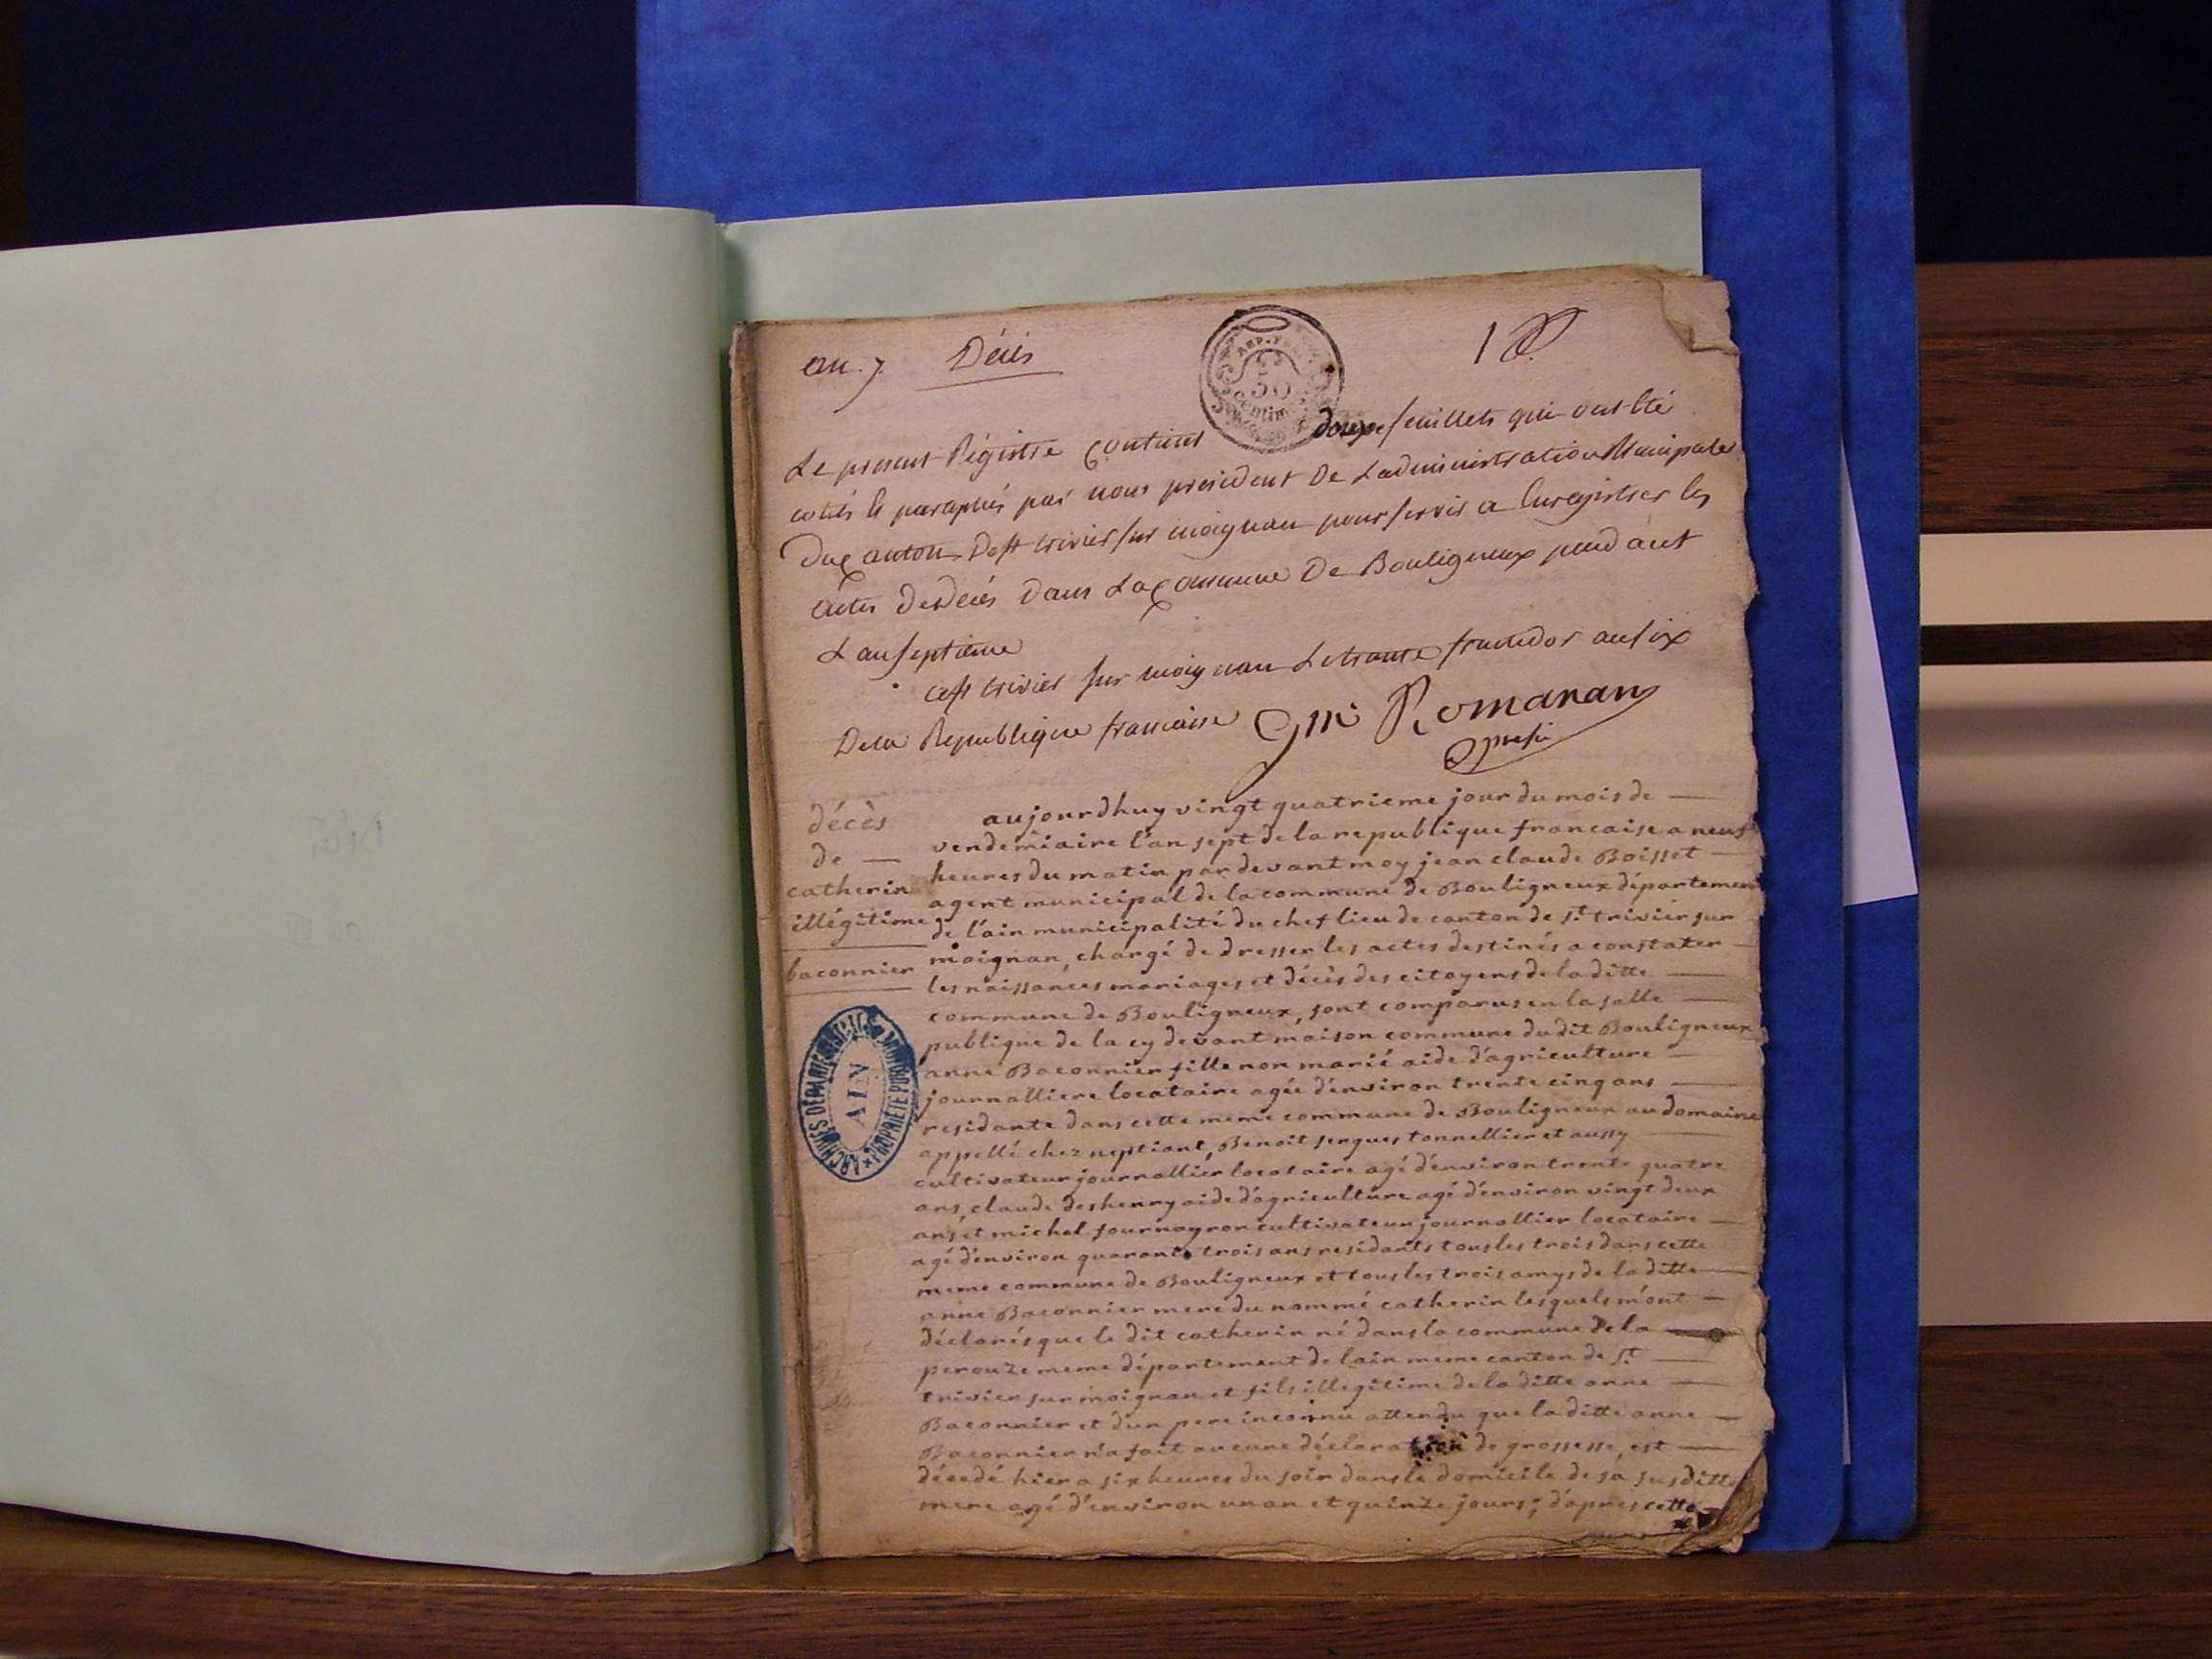 an. 7. Décès
REP. FRA.
50
centim.
1
Le present Régistre contient douze feuillets qui ont été
cotés & paraphés par nous président De Ladministration Municipale
Du Canton De St trivier sur moignan pour servir a Enregistrer les
actes De décès Dans La Commune De Bouligneux pendant
L'an septieme
a St trivier sur moignan Le trente fructidor an six
De la Republique francaise Romanans
presi
décès
de —
catherin
illégitime
baconnier
aujourdhuy vingt quatrieme jour du mois de
vendemiaire l'an sept de la republique francaise a neuf
heures du matin par devant moy jean claude Boisset
agent municipal de la commune de Bouligneux département
de l'ain municipalité du chef lieu de canton de st trivier sur
moignan, chargé de dresser les actes destinés a constater
les naissances mariages et décès des citoyens de la ditte
commune de Bouligneux, sont comparus en la salle
publique de la cy devant maison commune du dit Bouligneux
anne Baconnier fille non marié aide d'agriculture
journalliere locataire agée d'environ trente cinq ans
residante dans cette meme commune de Bouligneux au domaine
appellé chez neptiant, Benoit sergues tonnellier et aussy
cultivateur journallier locataire agé d'environ trente quatre
ans, claude deshenry aide d'agriculture agé d'environ vingt deux
ans et michel fournayron cultivateur journallier locataire
agé d'environ quarante trois ans residants tous les trois dans cette
meme commune de Bouligneux et tous les trois amys de la ditte
anne Baconnier mere du nommé catherin lesquels m'ont
déclarés que le dit catherin né dans la commune de la
perouze meme département de lain meme canton de st
trivier sur moignan et fils illegitime de la ditte anne
Baconnier et d'un pere inconnu attendu que la ditte anne
Baconnier n'a fait aucune déclaration de grossesse, est
décedé hier a six heures du soir dans le domicile de sa susditte
mere agé d'environ un an et quinze jours; d'apres cette
ARCHIVES DÉPARTEMENTALES * PROPRIÉTÉ PUBLIQUE
AIN